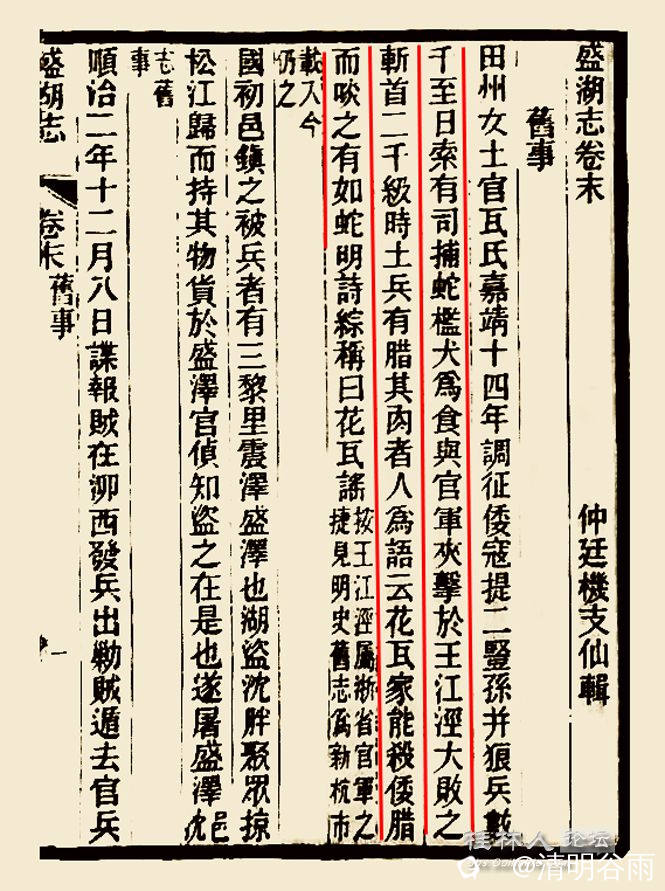 盛湖志卷末 仲廷機支仙輯
舊事
田州女土官瓦氏嘉靖十四年調征倭寇提二豎孫并狼兵數
千至日索有司捕蛇檻犬爲食與官軍夾擊於王江涇大敗之
斬首二千級時土兵有腊其肉者人爲語云花瓦家能殺倭腊
而啖之有如蛇明詩綜稱曰花瓦謠
按王江涇屬浙省官軍之
捷見明史舊志爲新杭市
載入今
仍之
國初邑鎮之被兵者有三黎里震澤盛澤也湖盜沈胖聚眾掠
松江歸而持其物貨於盛澤官偵知盜之在是也遂屠盛澤
邑
沈
志舊
事
順治二年十二月八日諜報賊在泖西發兵出勦賊遁去官兵
盛湖志 卷末 舊事 一
桂林人论坛
@清明谷雨